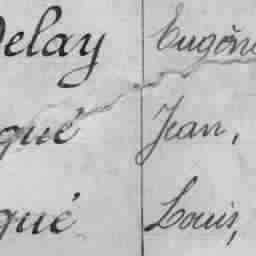 Delay Eugène
qué Jean,
qué Louis,